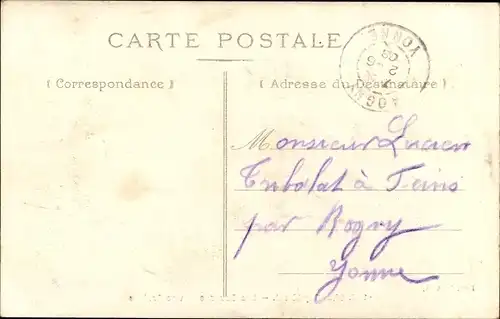 CARTE POSTALE
( Correspondance )
( Adresse du Destinataire )
YONNE
Monsieur Lucien
Tribolat à
par Rogny
Yonne